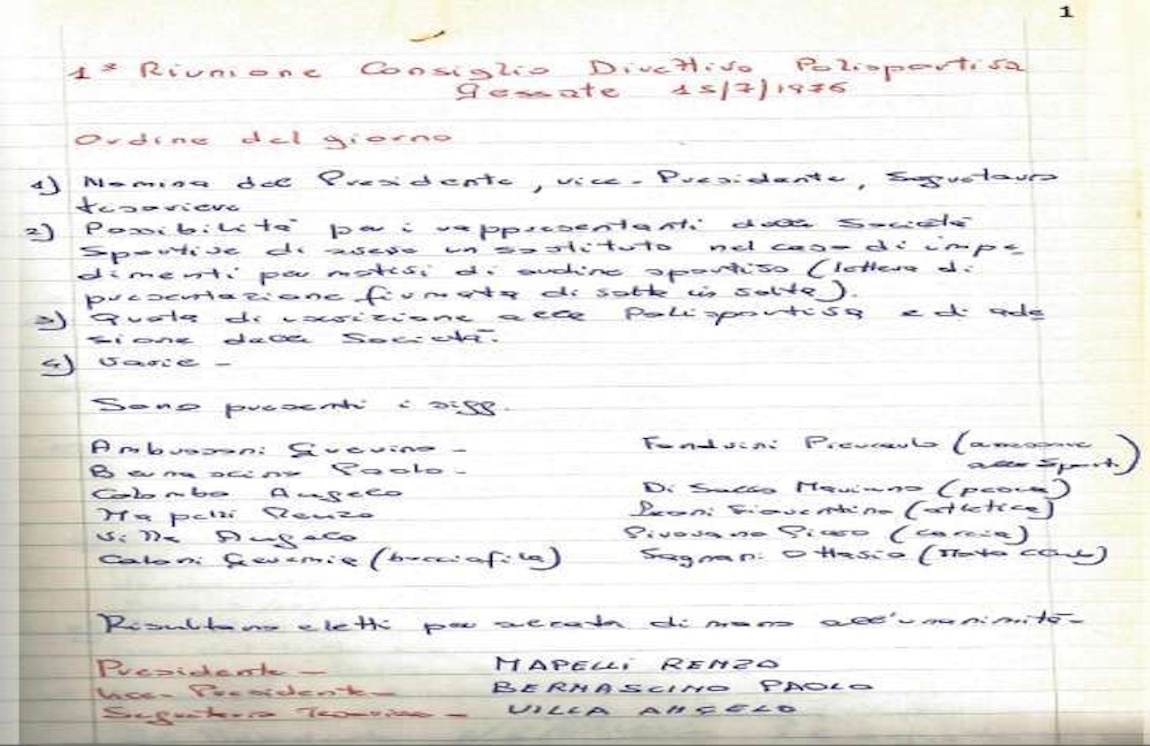 1
1ª Riunione Consiglio Direttivo Polisportiva
Gessate 15/7/1976
Ordine del giorno
1) Nomina del Presidente, vice-Presidente, Segretario
tesoriere
2) Possibilità per i rappresentanti delle Società
Sportive di avere un sostituto nel caso di impe
dimenti per motivi di ordine sportivo (lettera di
presentazione firmata di volta in volta).
3) Quota di iscrizione alla Polisportiva e di ade
sione delle Società.
4) Varie -
Sono presenti i sigg.
Ambrosoni Guerino - Fondrini Piercarlo (assessore
allo Sport)
Bernascino Paolo - Di Salvo Mariano (pesca)
Colombo Angelo Leoni Fiorentino (atletica)
Mapelli Renzo Pirovano Piero (caccia)
Villa Angelo Sagnani Ottavio
Caloni Geremia (bocciofila)
Risultano eletti per alzata di mano all'unanimità -
Presidente - MAPELLI RENZO
Vice-Presidente - BERNASCINO PAOLO
Segretario Tesoriere - VILLA ANGELO